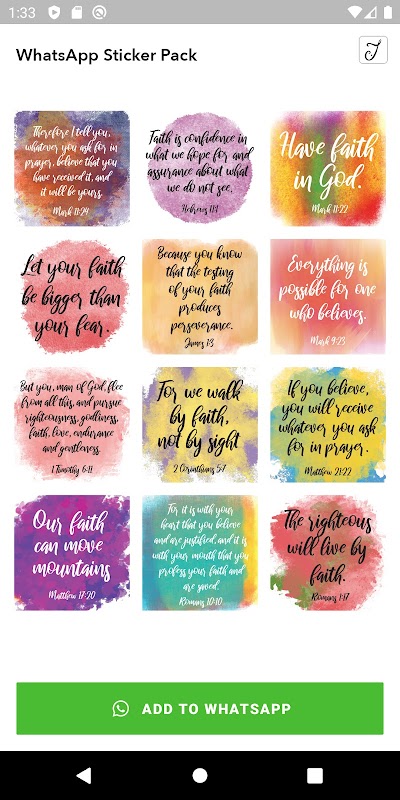 1:33
WhatsApp Sticker Pack
J
Therefore I tell you,
whatever you ask for in
prayer, believe that you
have received it, and
it will be yours.
Mark 11:24
Faith is confidence in
what we hope for and
assurance about what
we do not see.
Hebrews 11:1
Have faith
in God.
Mark 11:22
Let your faith
be bigger than
your fear.
Because you know
that the testing
of your faith
produces
perseverance.
James 1:3
Everything is
possible for one
who believes.
Mark 9:23
But you, man of God, flee
from all this, and pursue
righteousness, godliness,
faith, love, endurance
and gentleness.
1 Timothy 6:11
For we walk
by faith,
not by sight
2 Corinthians 5:7
If you believe,
you will receive
whatever you ask
for in prayer.
Matthew 21:22
Our faith
can move
mountains
Matthew 17:20
For it is with your
heart that you believe
and are justified, and it is
with your mouth that you
profess your faith and
are saved.
Romans 10:10
The righteous
will live by
faith.
Romans 1:17
ADD TO WHATSAPP